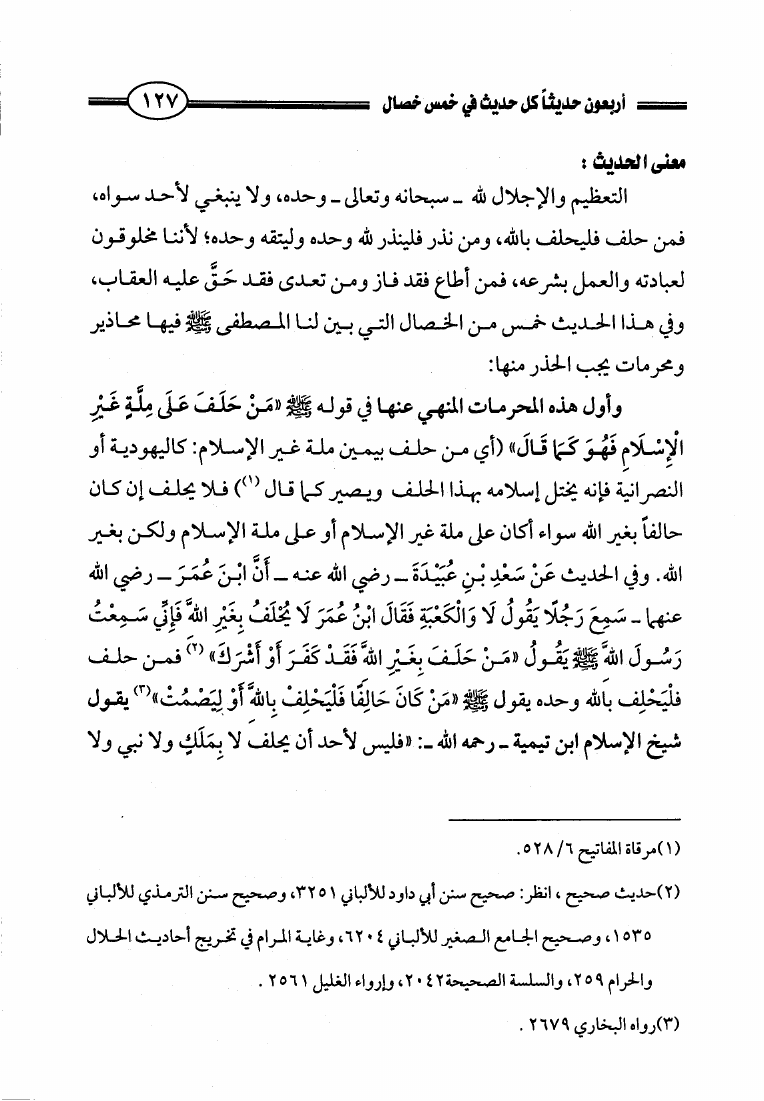 أربعون حديثاً كل حديث في خمس خصال ١٢٧
معنى الحديث :
التعظيم والإجلال لله ـ سبحانه وتعالى ـ وحده، ولا ينبغي لأحد سواه،
فمن حلف فليحلف بالله، ومن نذر فلينذر لله وحده وليتقه وحده؛ لأننا مخلوقون
لعبادته والعمل بشرعه، فمن أطاع فقد فاز ومن تعدى فقد حَقَّ عليه العقاب،
وفي هذا الحديث خمس من الخصال التي بين لنا المصطفى ﷺ فيها محاذير
ومحرمات يجب الحذر منها:
وأول هذه المحرمات المنهي عنها في قوله ﷺ «مَنْ حَلَفَ عَلَى مِلَّةٍ غَيْرِ
الْإِسْلَامِ فَهُوَ كَمَا قَالَ» (أي من حلف بيمين ملة غير الإسلام: كاليهودية أو
النصرانية فإنه يختل إسلامه بهذا الحلف ويصير كما قال (١)) فلا يحلف إن كان
حالفاً بغير الله سواء أكان على ملة غير الإسلام أو على ملة الإسلام ولكن بغير
الله. وفي الحديث عَنْ سَعْدِ بْنِ عُبَيْدَةَ ـ رضي الله عنه ـ أَنَّ ابْنَ عُمَرَ ـ رضي الله
عنهما ـ سَمِعَ رَجُلًا يَقُولُ لَا وَالْكَعْبَةِ فَقَالَ ابْنُ عُمَرَ لَا يُحْلَفُ بِغَيْرِ اللَّهِ فَإِنِّي سَمِعْتُ
رَسُولَ اللَّهِ ﷺ يَقُولُ «مَنْ حَلَفَ بِغَيْرِ اللَّهِ فَقَدْ كَفَرَ أَوْ أَشْرَكَ» (٢) فمن حلف
فلْيَحْلِف بالله وحده يقول ﷺ «مَنْ كَانَ حَالِفًا فَلْيَحْلِفْ بِاللَّهِ أَوْ لِيَصْمُتْ»(٣) يقول
شيخ الإسلام ابن تيمية ـ رحمه الله ـ: «فليس لأحد أن يحلف لا بِمَلَكٍ ولا نبي ولا
(١)مرقاة المفاتيح ٥٢٨/٦.
(٢)حديث صحيح ، انظر: صحيح سنن أبي داود للألباني ٣٢٥١، وصحيح سنن الترمذي للألباني
١٥٣٥، وصحيح الجامع الصغير للألباني ٦٢٠٤، وغاية المرام في تخريج أحاديث الحلال
والحرام ٢٥٩، والسلسة الصحيحة٢٠٤٢، وإرواء الغليل ٢٥٦١ .
(٣)رواه البخاري ٢٦٧٩ .